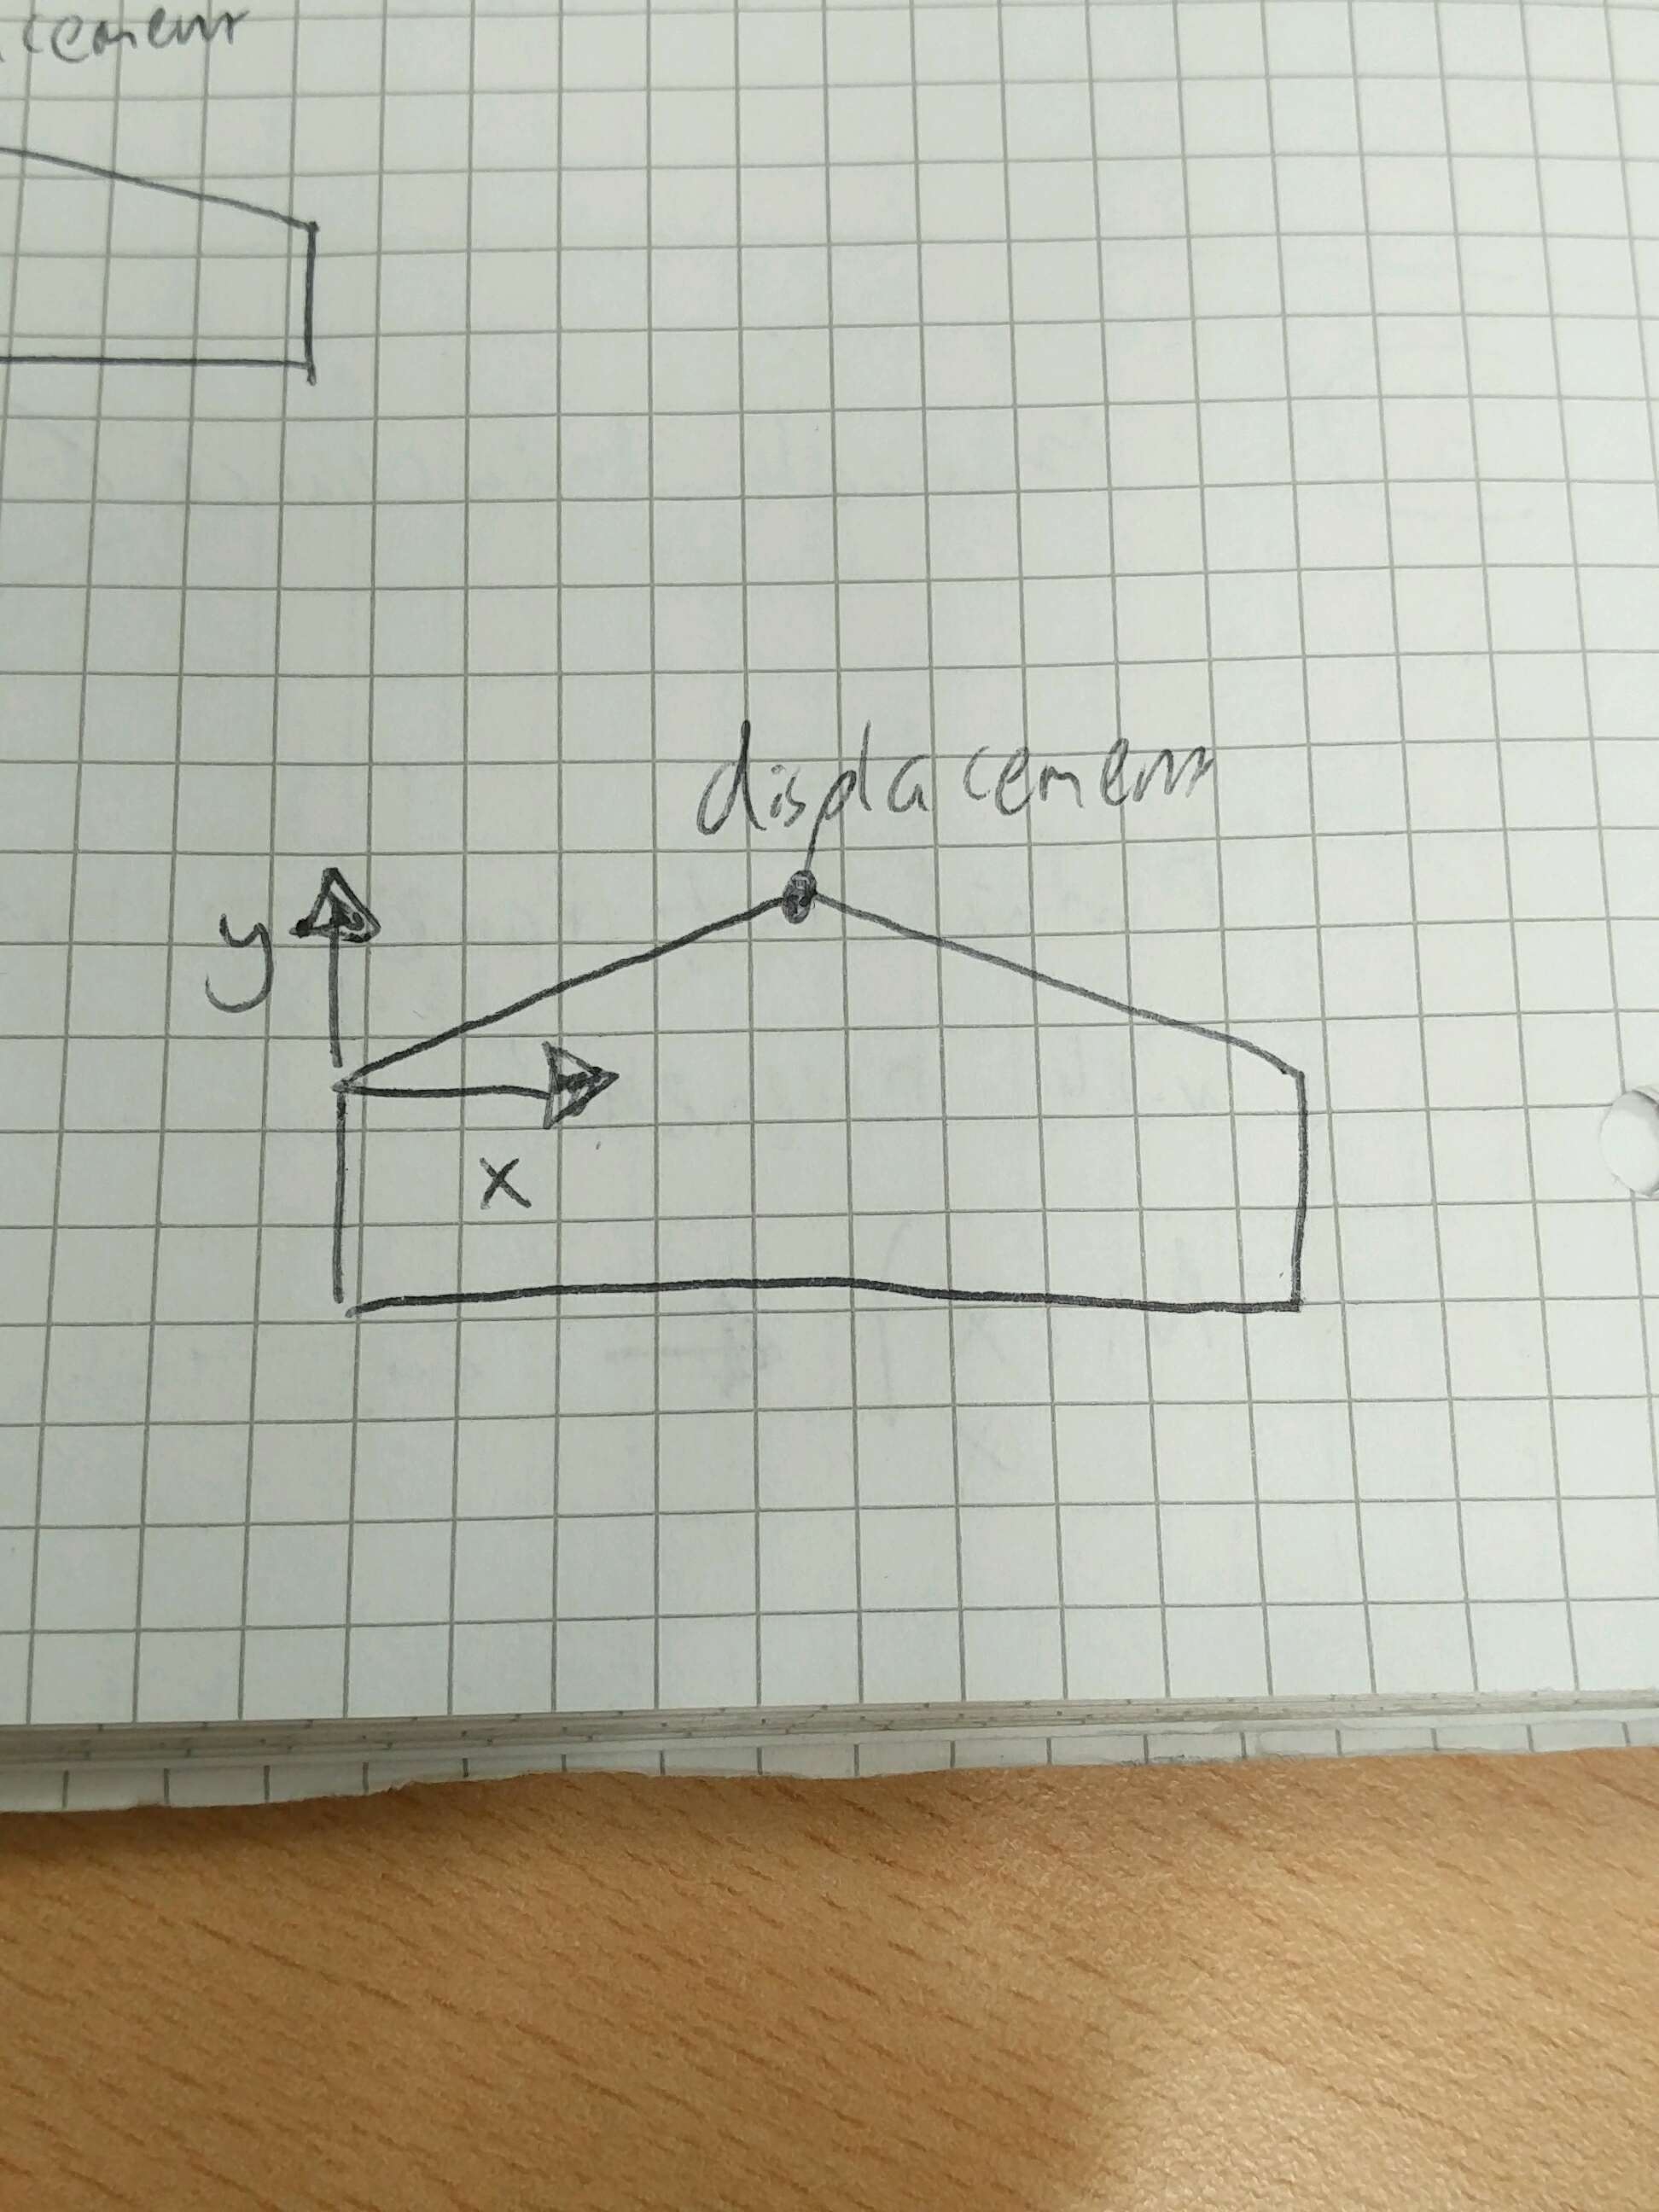 cement
displacement
y
x